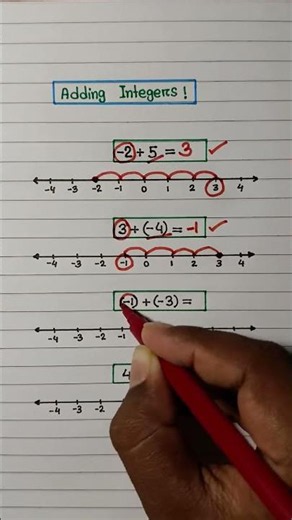 Adding Integers!
-2 + 5 = 3 ✓
-4 -3 -2 -1 0 1 2 3 4
3 + (-4) = -1 ✓
-4 -3 -2 -1 0 1 2 3 4
(-1) + (-3) =
-4 -3 -2 -1
4
-4 -3 -2